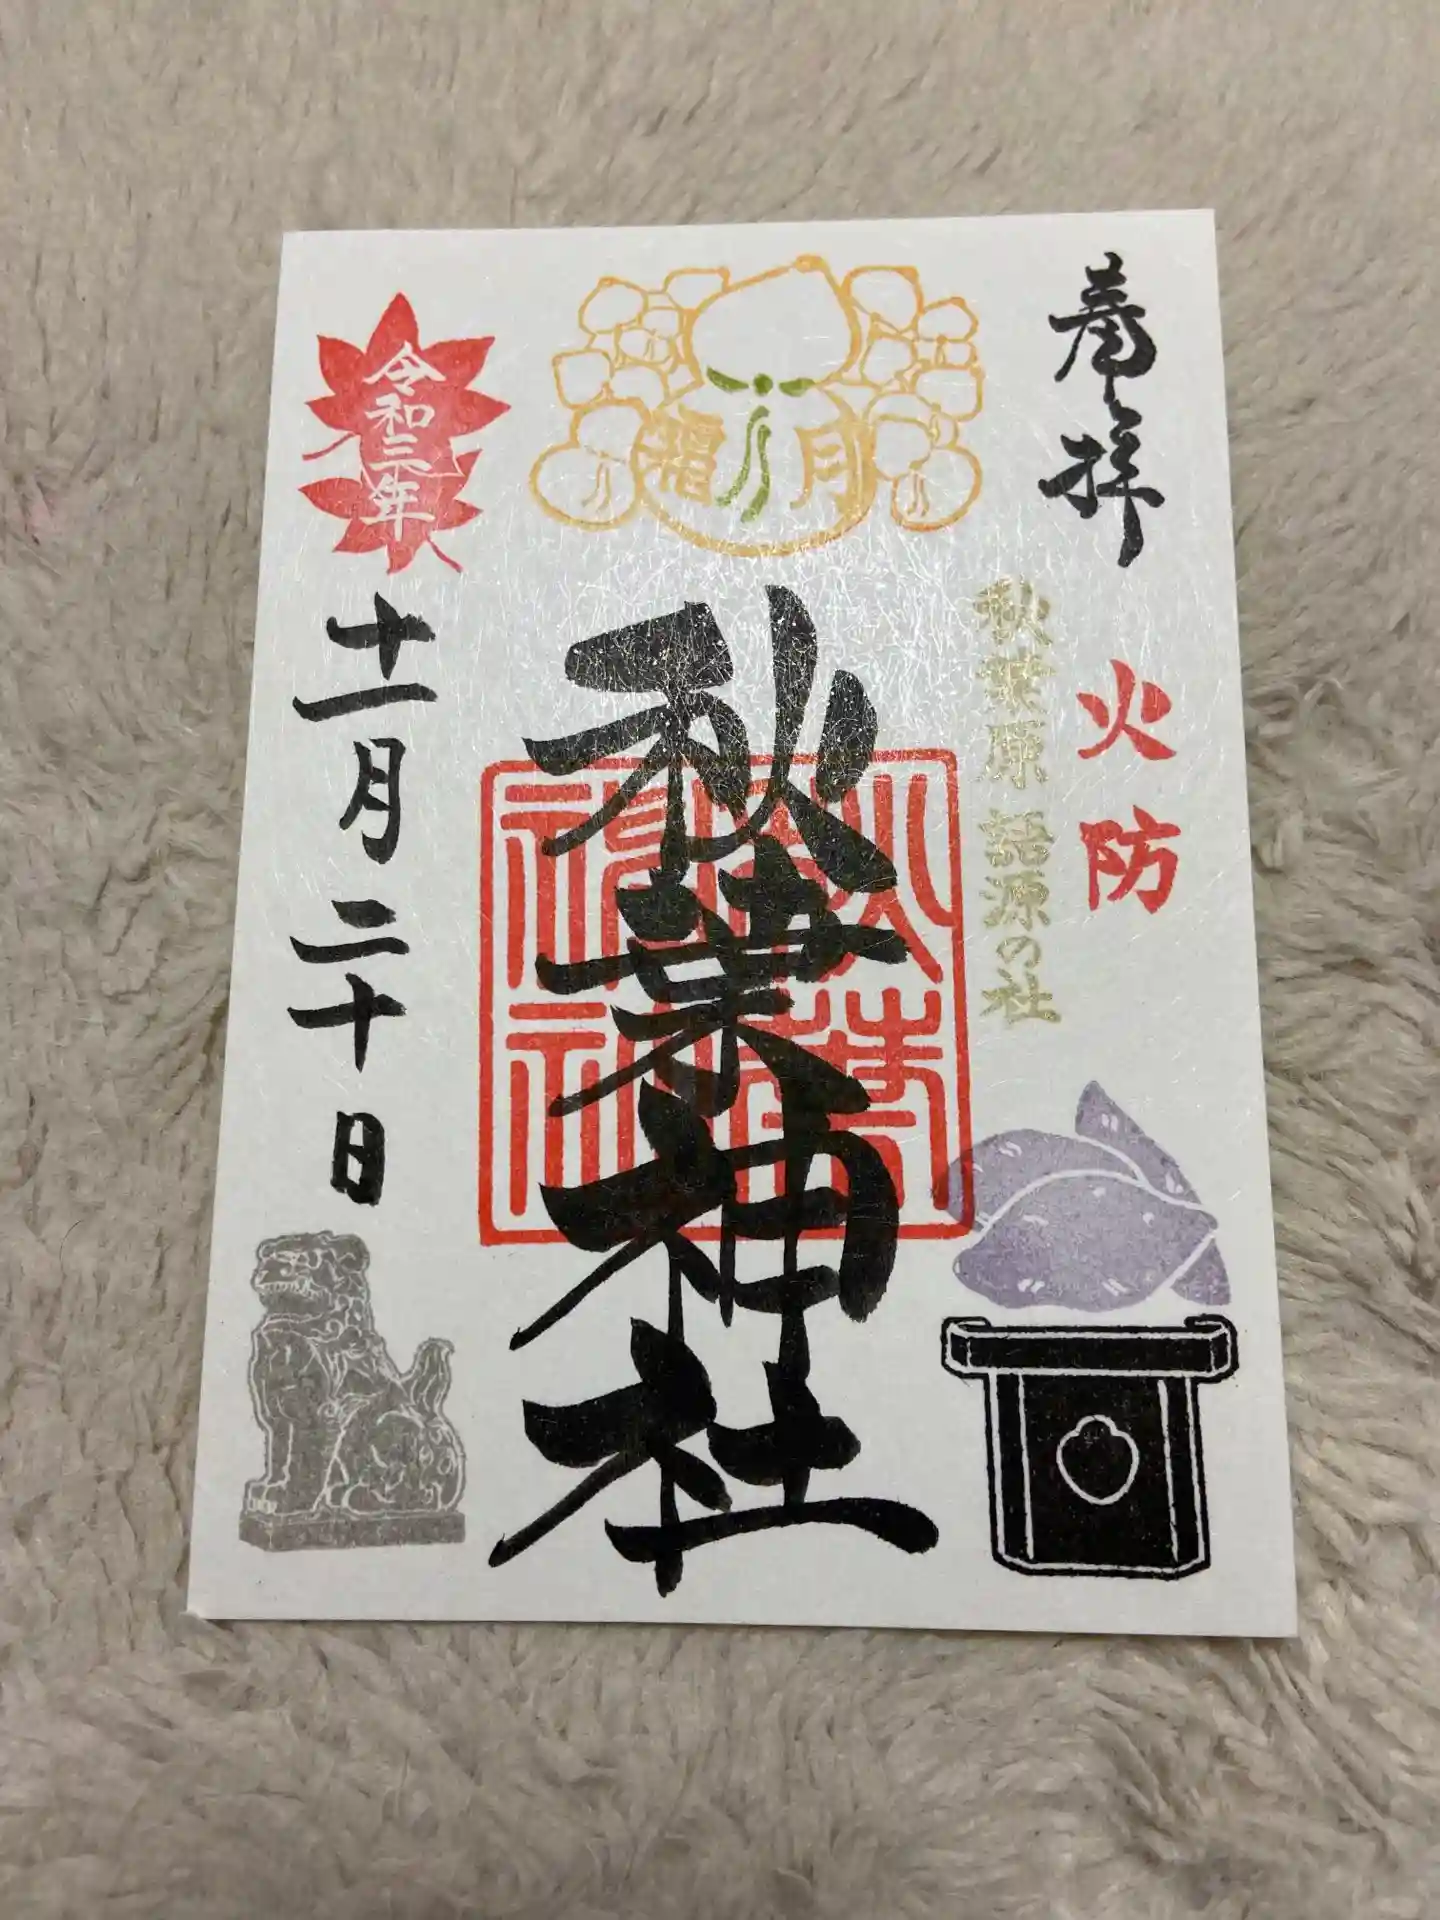 奉拝
火防
秋葉原 語源の社
霜月
秋葉神社
秋葉神社
令和三年
十一月二十日